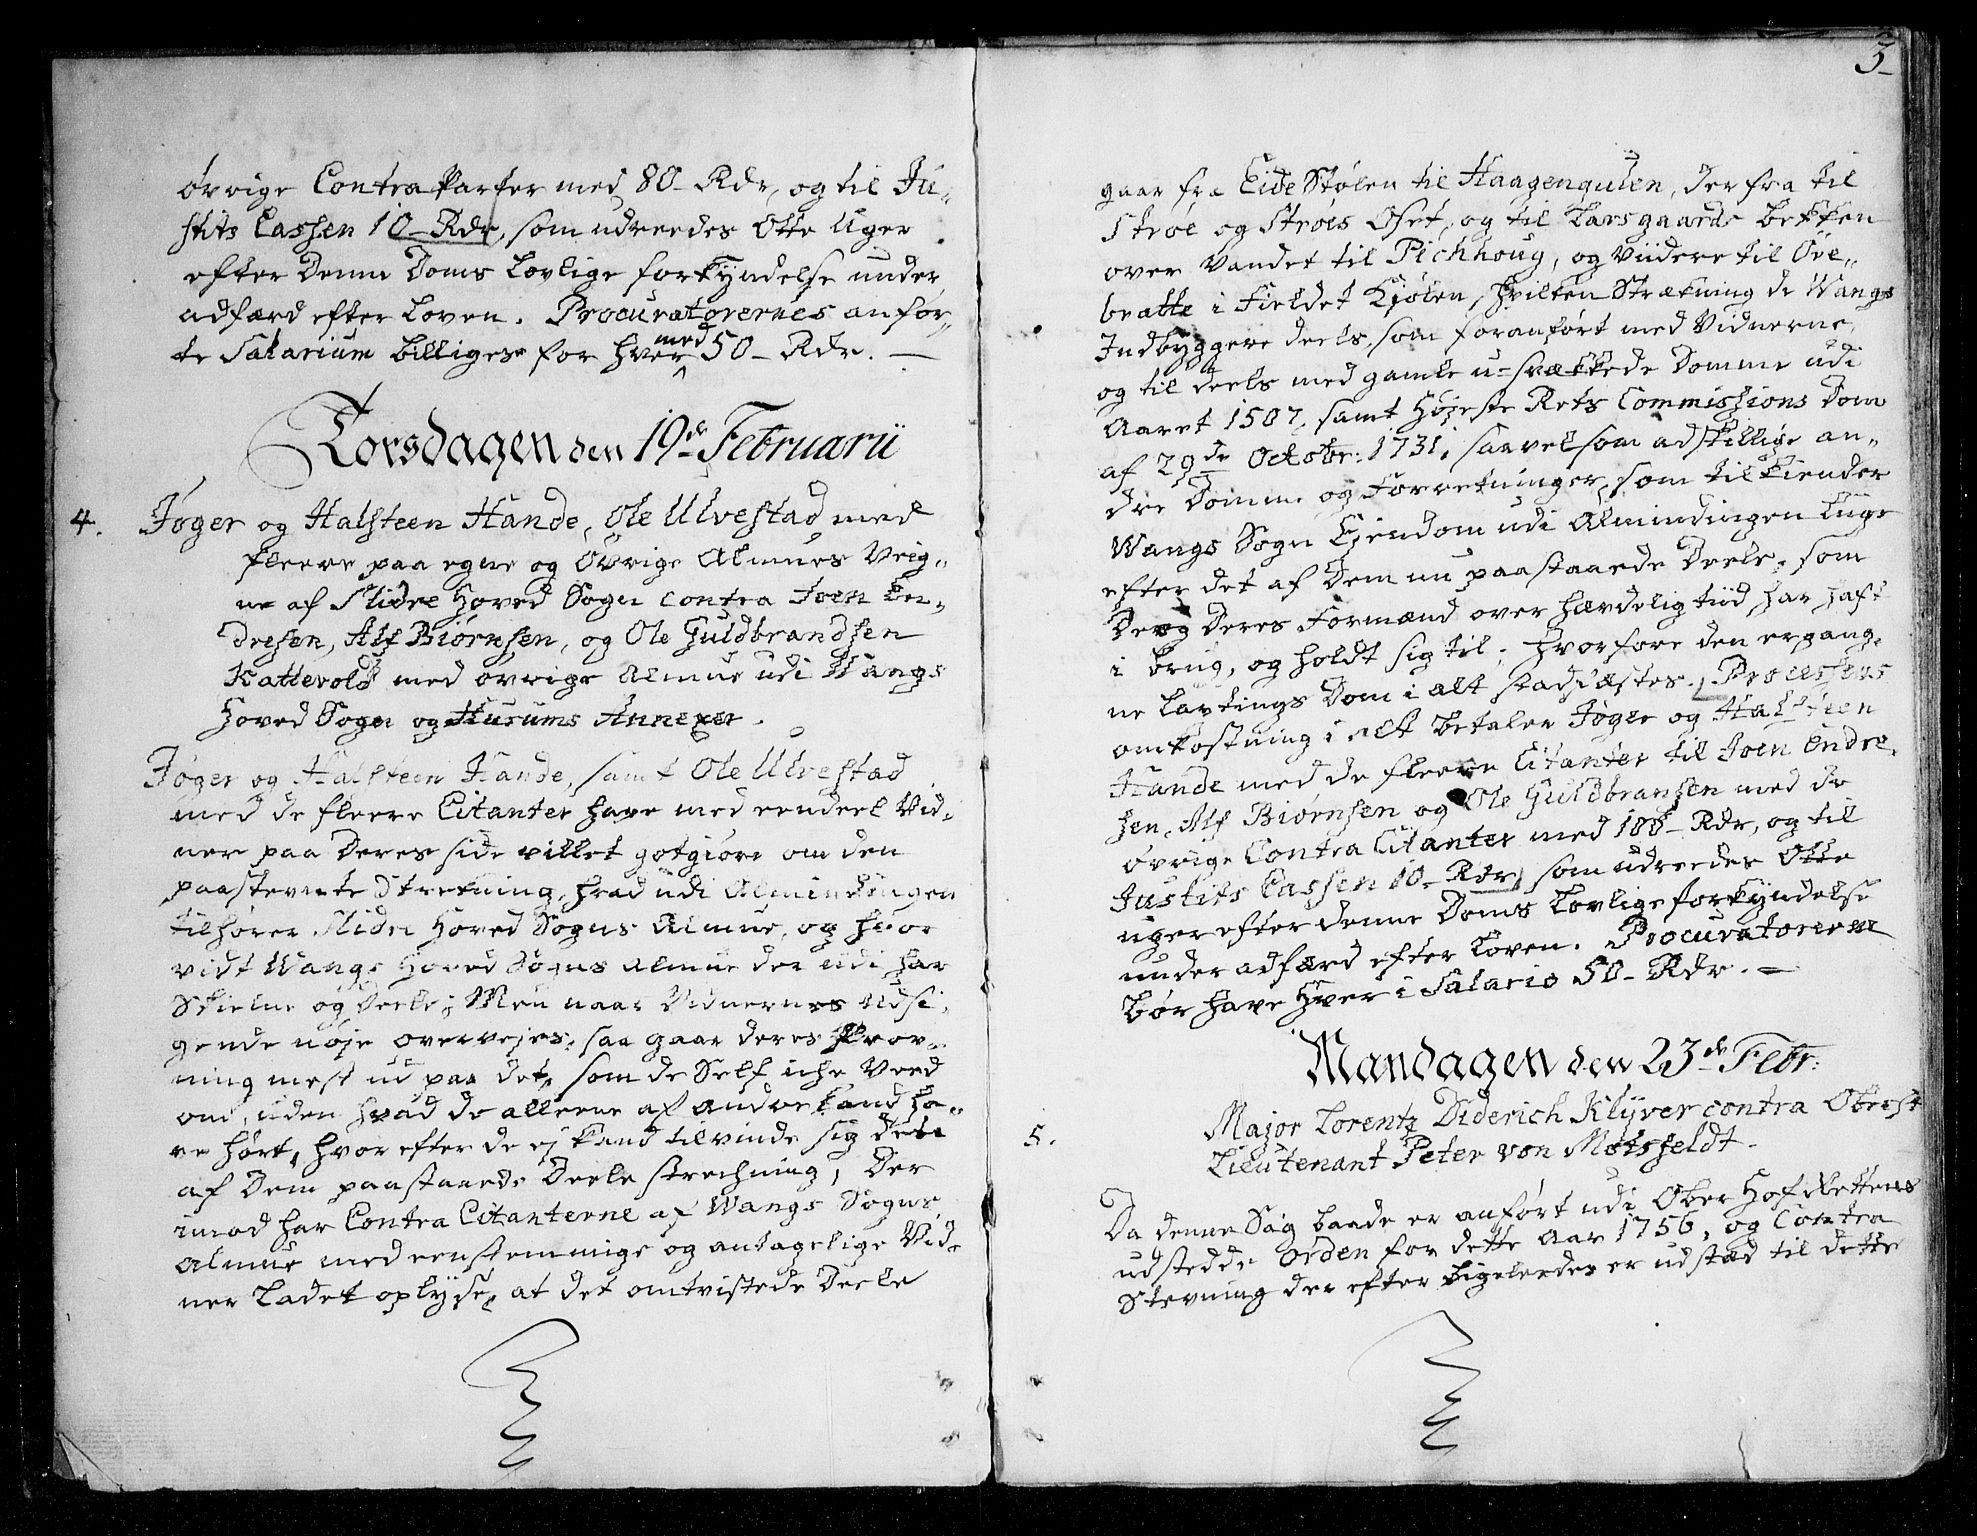 øvrige Contra Parter med 80 Rdr, og til Ju-
stits Cassen 10 Rdr, som udreedes Otte Uger
efter Denne Doms Lovlige forkyndelse under
adfærd efter Loven. Procuratorernes anfør-
te Salarium billiges for hver med 50 Rdr. —
Torsdagen den 19de Februarii
4. Jøger og Halsteen Hande, Ole Ulvestad med
fleere paa egne og Øvrige Almues Veig-
ne af Slidre Hoved Sogn contra Joen En-
dresen, Alf Biørnsen, og Ole Guldbrandsen
Kattevold med øvrige Almue udi Wangs
Hoved Sogn og Hurums Annexer.
Jøger og Halsteen Hande, samt Ole Ulvestad
med de fleere Citanter have med eendeel Vid-
ner paa Deres side villet gotgiøre om den
paastevnte Strekning, hvad udi Almindingen
tilhører Slidre Hoved Sogns Almue, og hvor
vidt Wangs Hoved Sogns Almue der udi har
Skielne og Deele; Men naar Vidnernes Udsi-
gende nøje overvejes, saa gaar deres Prov-
ning mest ud paa det, som de Self iche Veed
om, uden hvad de alleene af andre kand ha-
ve hørt, hvor efter de ej kand tilvinde sig det
af Dem paastaaede Deele strechning, Der
imod har Contra Citanterne af Wangs Sogns
Almue med eenstemmige og antagelige Vid-
ner Ladet oplyse, at det omtvistede Deele
3
gaar fra Eide Stølen til Haagengulen, der fra til
Strøe og Strøes Øset, og til Larsgaards bekken
over Vandet til Pichhoug, og Viidere til Øve-
bratte i Fieldet Kjølen, hvilken Strækning de Wangs
Indbyggere deels, som foranført med Vidnerne,
og til deels med gamle u-svækkede Domme udi
Aaret 1507, samt Højeste Rets Commissions Dom
af 29de Octobr: 1731, saavelsom adskillige an-
dre Domme og Forretninger, som tilkiender
Wangs Sogn Ejendom udi Almindingen Liige
efter det af Dem nu paastaaede Deele, som
De og Deres Formænd over hævdelig tiid har haft
i brug, og holdt sig til; hvorfore den ergang-
ne Lavtings Dom i alt stadfæstes. Processens
omkostning i alt betaler Jøger og Halsteen
Hande med de fleere Citanter til Joen Endre-
sen, Alf Biørnsen og Ole Guldbransen med de
øvrige Contra Citanter med 100 Rdr, og til
Justits Cassen 10 Rdr, som udreedes Otte
uger efter denne Doms Lovlige forkyndelse
under adfærd efter Loven. Procuratorerne
bør have Hver i Salario 50 Rdr. —
Mandagen den 23de Febr:
5. Major Lorentz Diderich Klyver contra Oberst
Lieutenant Peter von Motzfeldt.
Da denne Sag baade er anført udi Ober Hof Rettens
udstedde Orden for dette Aar 1756, og Contra
Stevning der efter Ligeleedes er udstæd til dette